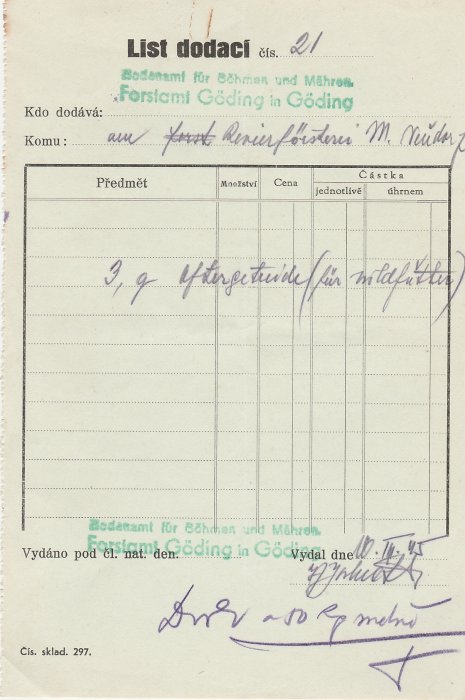 List dodací čís. 21
Bodenamt für Böhmen und Mähren.
Forstamt Göding in Göding
Kdo dodává:
Komu: am Forst Revierförsterei M. Neudorf
Předmět Množství Cena Částka
jednotlivě úhrnem
3, q Aftergetreide (für Wildfutter)
Bodenamt für Böhmen und Mähren.
Forstamt Göding in Göding
Vydáno pod čl. mat. den. Vydal dne 10.
a 50 kg
Čís. sklad. 297.